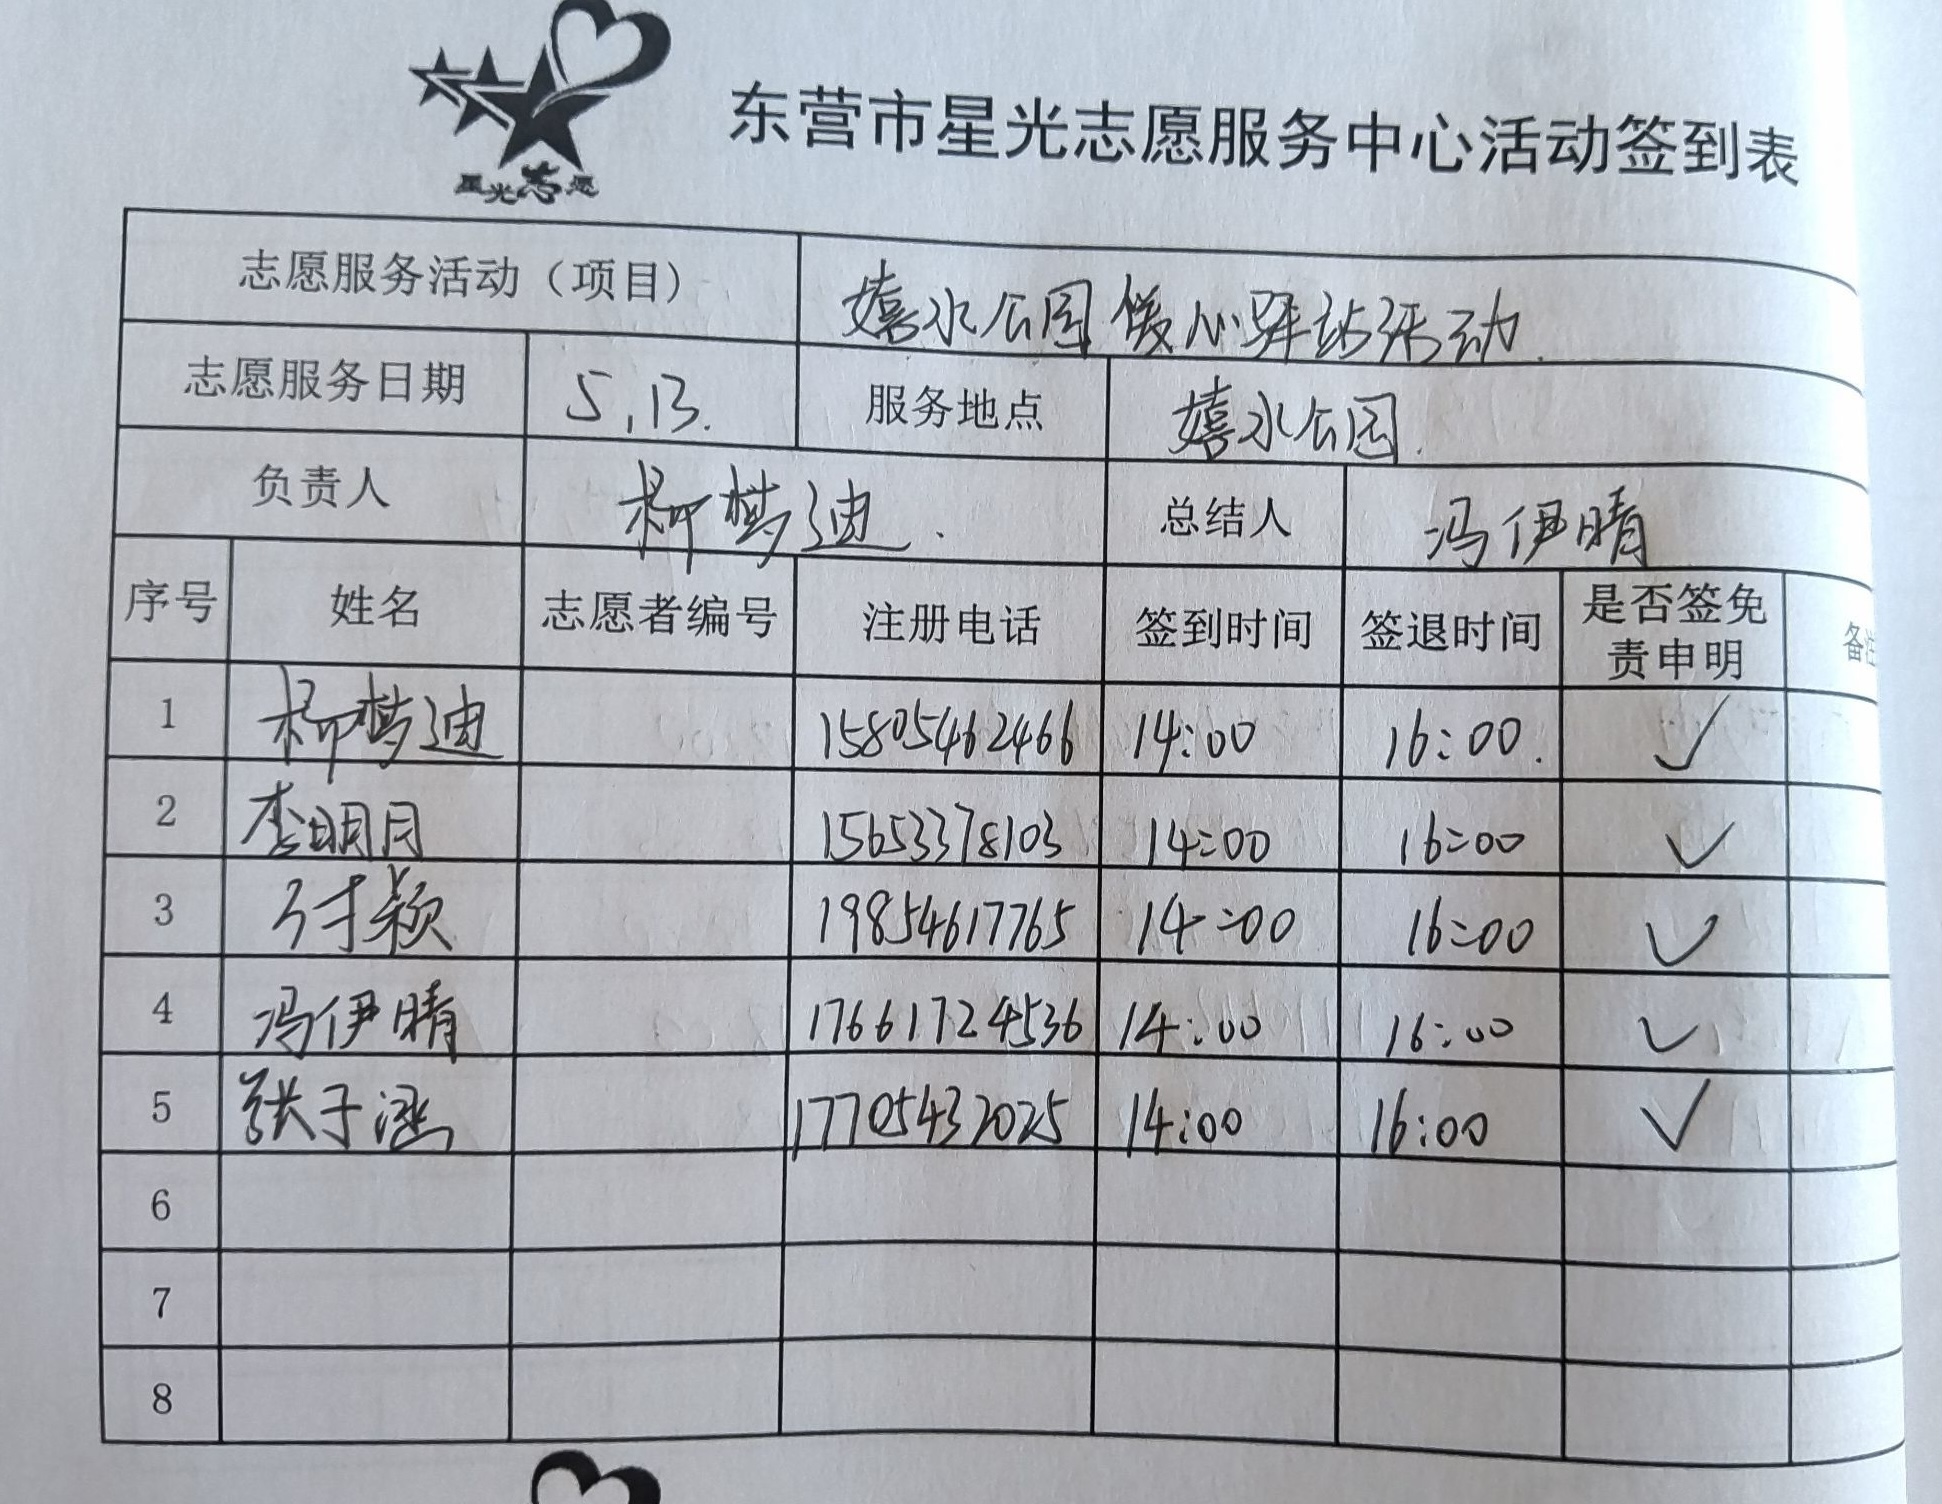 星光志愿
东营市星光志愿服务中心活动签到表
志愿服务活动（项目） 嬉水公园暖心驿站活动.
志愿服务日期 5.13. 服务地点 嬉水公园.
负责人 柳梦迪. 总结人 冯伊晴
序号 姓名 志愿者编号 注册电话 签到时间 签退时间 是否签免责申明 备注
1 柳梦迪 15805462466 14:00 16:00. ✓
2 李明月 15653378103 14:00 16:00 ✓
3 付颖 19854617765 14:00 16:00 ✓
4 冯伊晴 17661724536 14:00 16:00 ✓
5 张子涵 17705432025 14:00 16:00 ✓
6
7
8